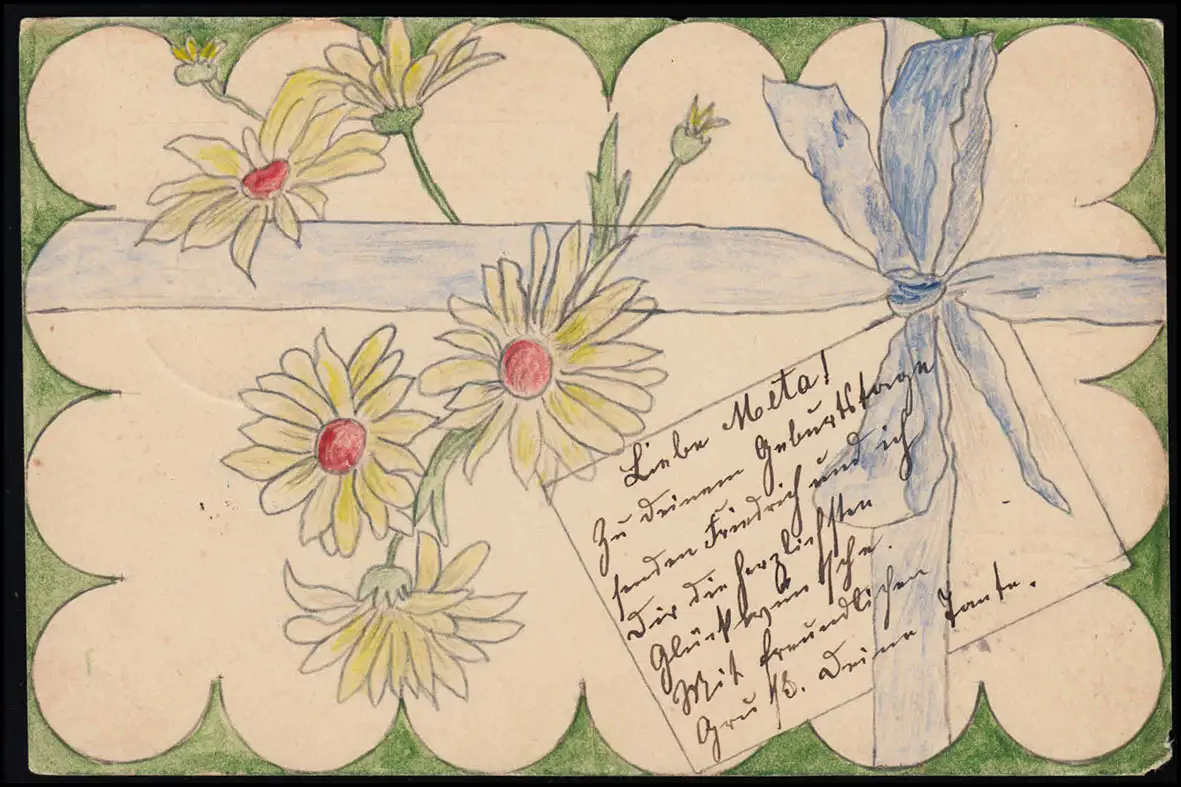 Liebe Meta!
Zu deinem Geburtstage
senden Friedrich und ich
Dir die herzlichsten
Glückwünsche.
Mit freundlichen
Gruß. Deine Tante.